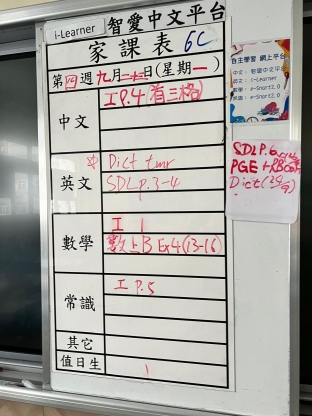 i-Learner 智愛中文平台
家課表 6C
第四週九月二十三日(星期一)
中文
I P.4 (有三格)
英文
Dict tmr
SDL P.3-4
數學
I 1
數上B Ex4(13-16)
常識
I P.5
其它
值日生
1
自主學習 網上平台
中文: 智愛中文平台
英文: e-Smart2.0
數學: e-Smart2.0
SDL P.6
PGE + RB Corr
Dict (25/9)